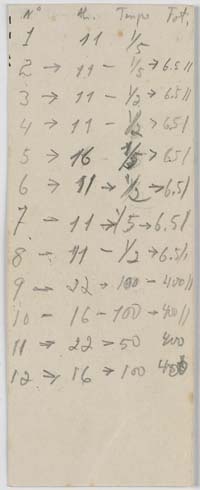 Nº Ah. Tempo Tot,
1 11 1/5
2 → 11 - 1/5 → 6.5 11
3 → 11 - 1/2 → 6.5 11
4 → 11 - 1/2 → 6.5 1
5 → 16 1/5 → 6.5 1
6 → 11 → 1/2 → 6.5 1
7 - 11 → 1/5 → 6.5 1
8 - 11 - 1/2 → 6.5 11
9 → 22 → 100 - 400 11
10 - 16 - 100 → 400 11
11 → 22 > 50 400
12 → 16 → 100 400